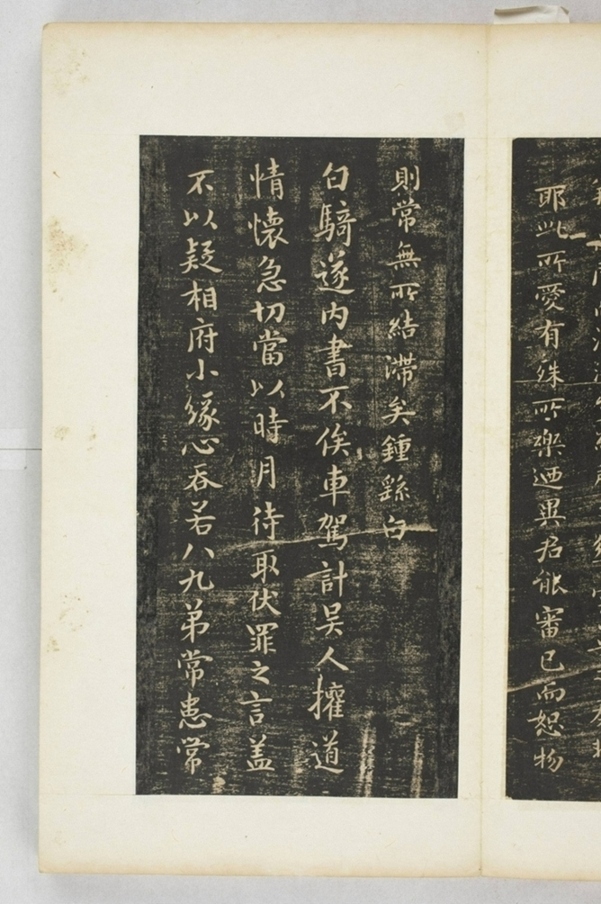 耶此所愛有殊所樂迺異君能審己而恕物
則常無所結滯矣鍾繇白
白騎遂內書不俟車駕計吳人擁道
情懷急切當以時月待取伏罪之言盖
不以疑相府小緣心吞若八九弟常患常